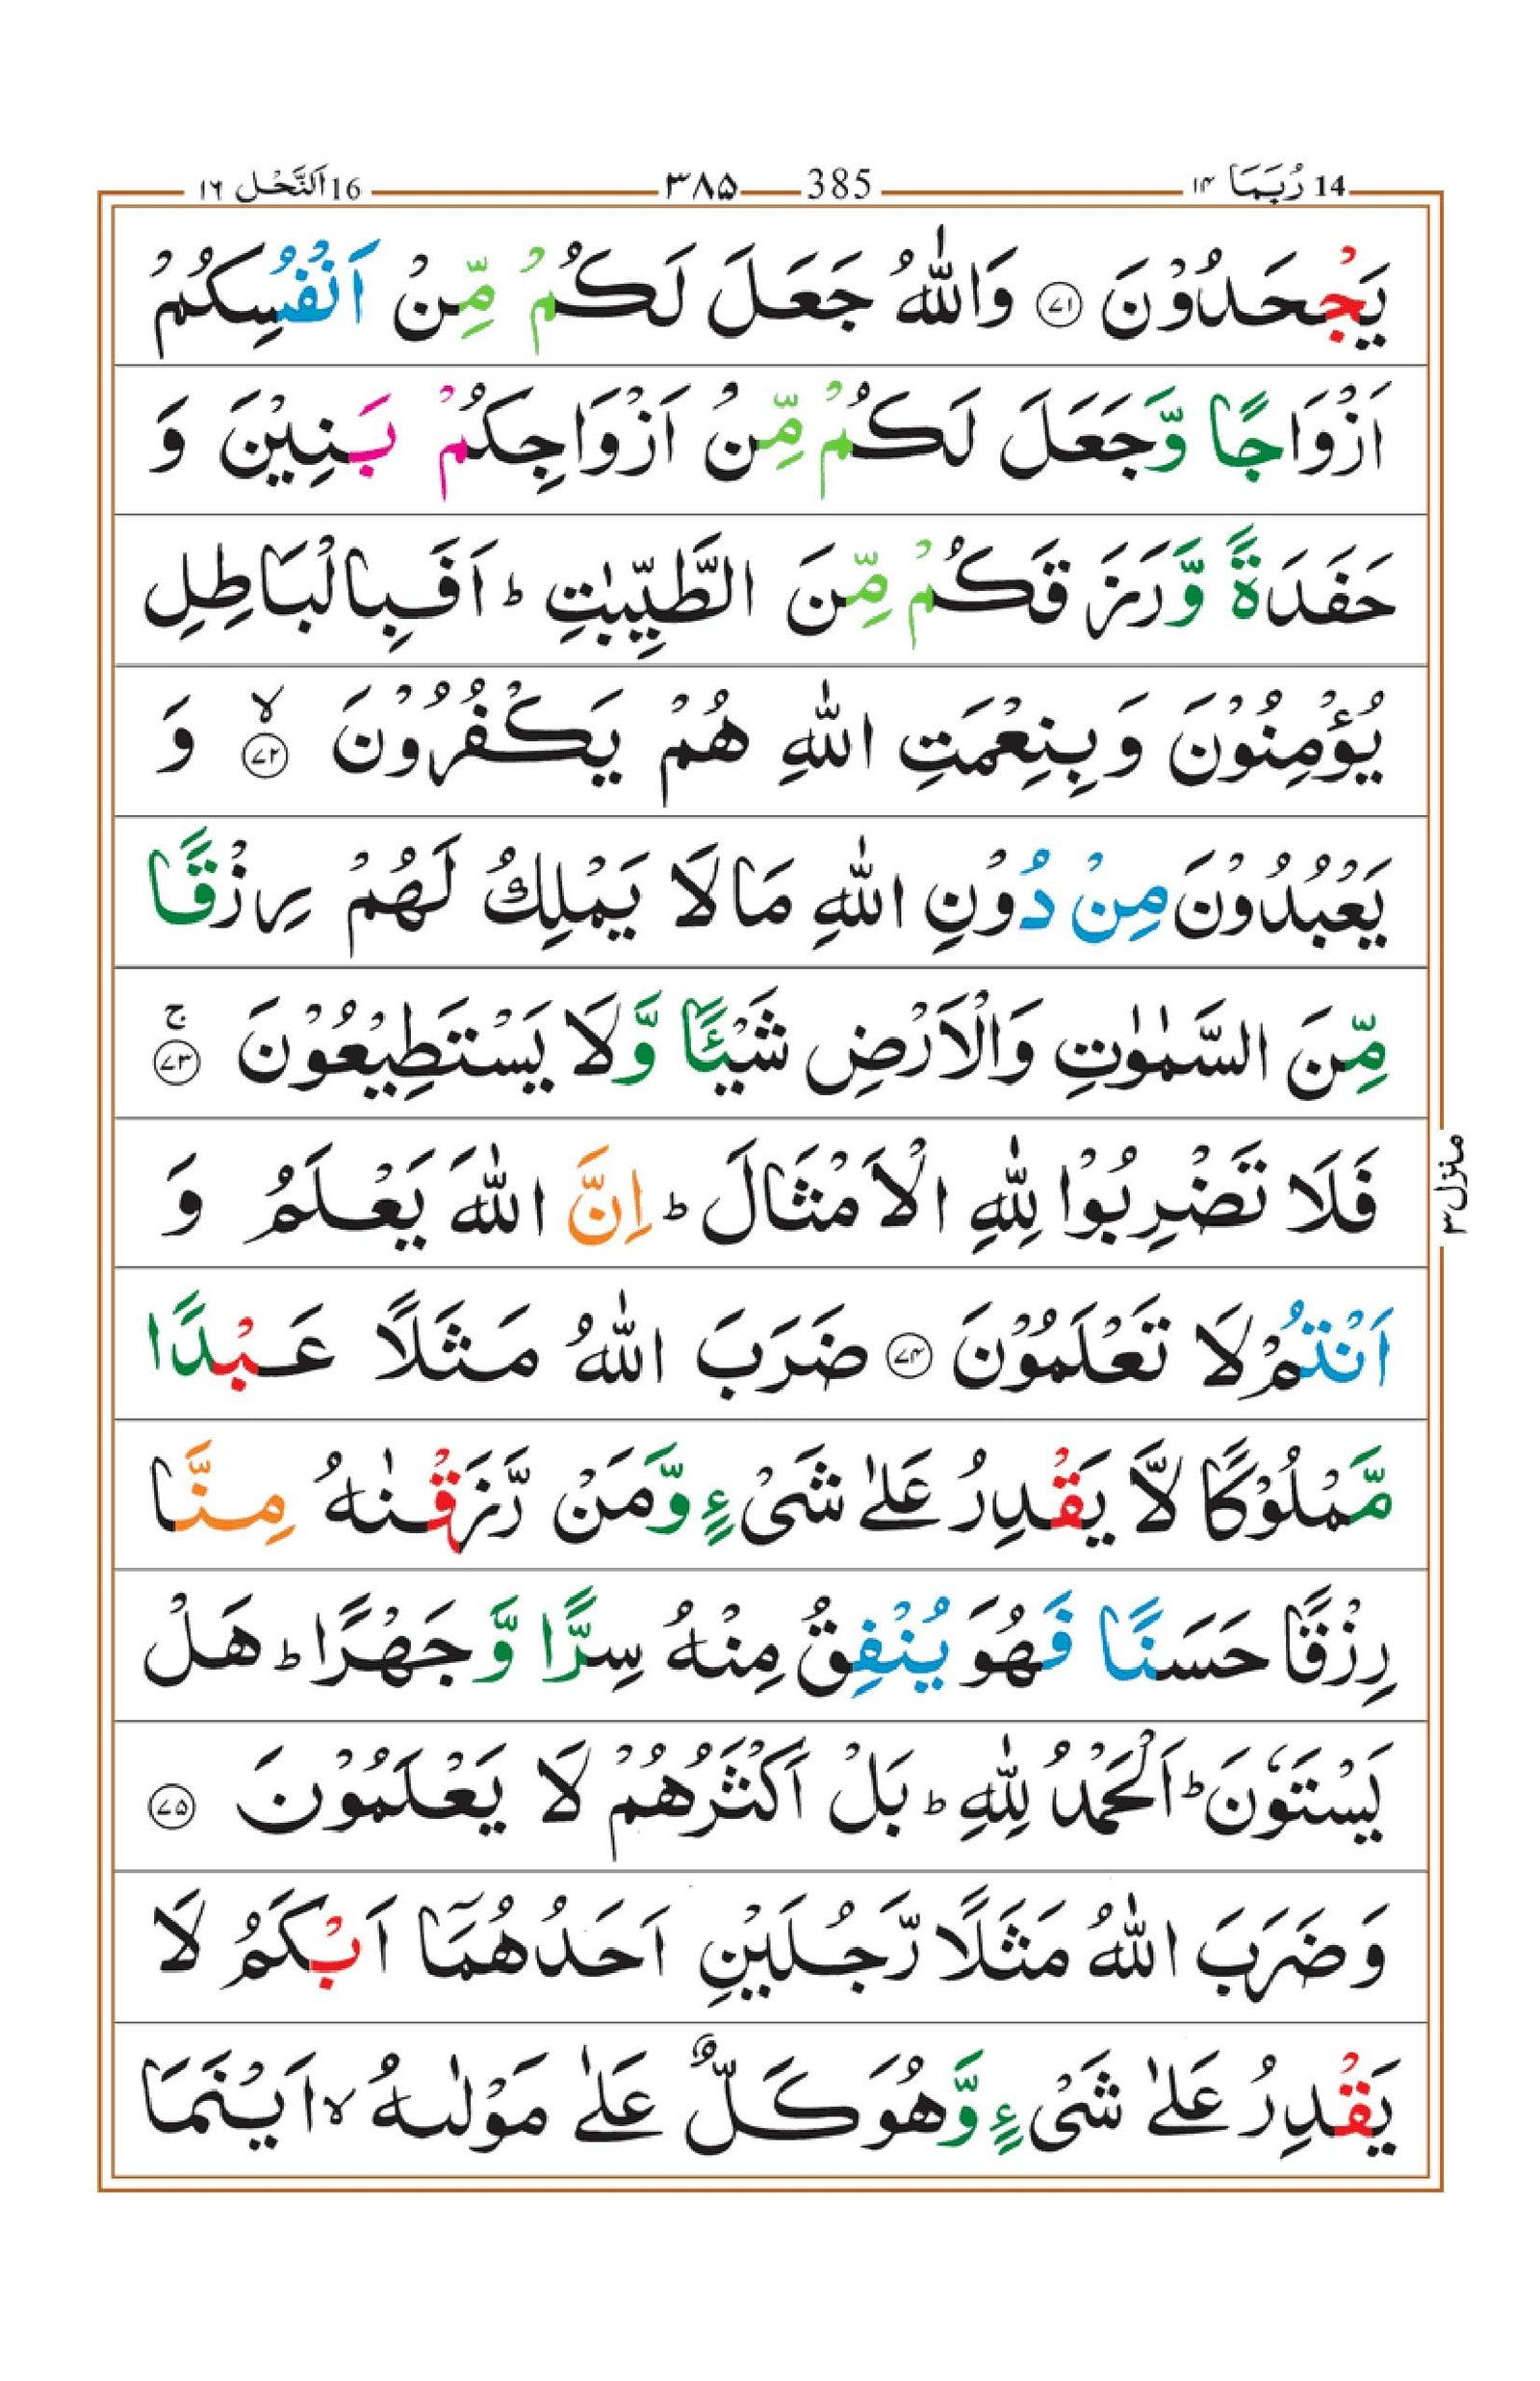 14 رُبَمَا ۱۴ 385 ۳۸۵ 16 اَلنَّحْل ۱۶
يَجْحَدُوْنَ ﴿۷۱﴾ وَاللّٰهُ جَعَلَ لَكُمْ مِّنْ اَنْفُسِكُمْ
اَزْوَاجًا وَّجَعَلَ لَكُمْ مِّنْ اَزْوَاجِكُمْ بَنِيْنَ وَ
حَفَدَةً وَّرَزَقَكُمْ مِّنَ الطَّيِّبٰتِ ؕ اَفَبِالْبَاطِلِ
يُؤْمِنُوْنَ وَبِنِعْمَتِ اللّٰهِ هُمْ يَكْفُرُوْنَ ۙ﴿۷۲﴾ وَ
يَعْبُدُوْنَ مِنْ دُوْنِ اللّٰهِ مَا لَا يَمْلِكُ لَهُمْ رِزْقًا
مِّنَ السَّمٰوٰتِ وَالْاَرْضِ شَيْـًٔا وَّلَا يَسْتَطِيْعُوْنَ ۚ﴿۷۳﴾
فَلَا تَضْرِبُوْا لِلّٰهِ الْاَمْثَالَ ؕ اِنَّ اللّٰهَ يَعْلَمُ وَ
اَنْتُمْ لَا تَعْلَمُوْنَ ﴿۷۴﴾ ضَرَبَ اللّٰهُ مَثَلًا عَبْدًا
مَّمْلُوْكًا لَّا يَقْدِرُ عَلٰى شَىْءٍ وَّمَنْ رَّزَقْنٰهُ مِنَّا
رِزْقًا حَسَنًا فَهُوَ يُنْفِقُ مِنْهُ سِرًّا وَّجَهْرًا ؕ هَلْ
يَسْتَوٗنَ ؕ اَلْحَمْدُ لِلّٰهِ ؕ بَلْ اَكْثَرُهُمْ لَا يَعْلَمُوْنَ ﴿۷۵﴾
وَضَرَبَ اللّٰهُ مَثَلًا رَّجُلَيْنِ اَحَدُهُمَاۤ اَبْكَمُ لَا
يَقْدِرُ عَلٰى شَىْءٍ وَّهُوَ كَلٌّ عَلٰى مَوْلٰىهُ ۙ اَيْنَمَا
منزل ۳